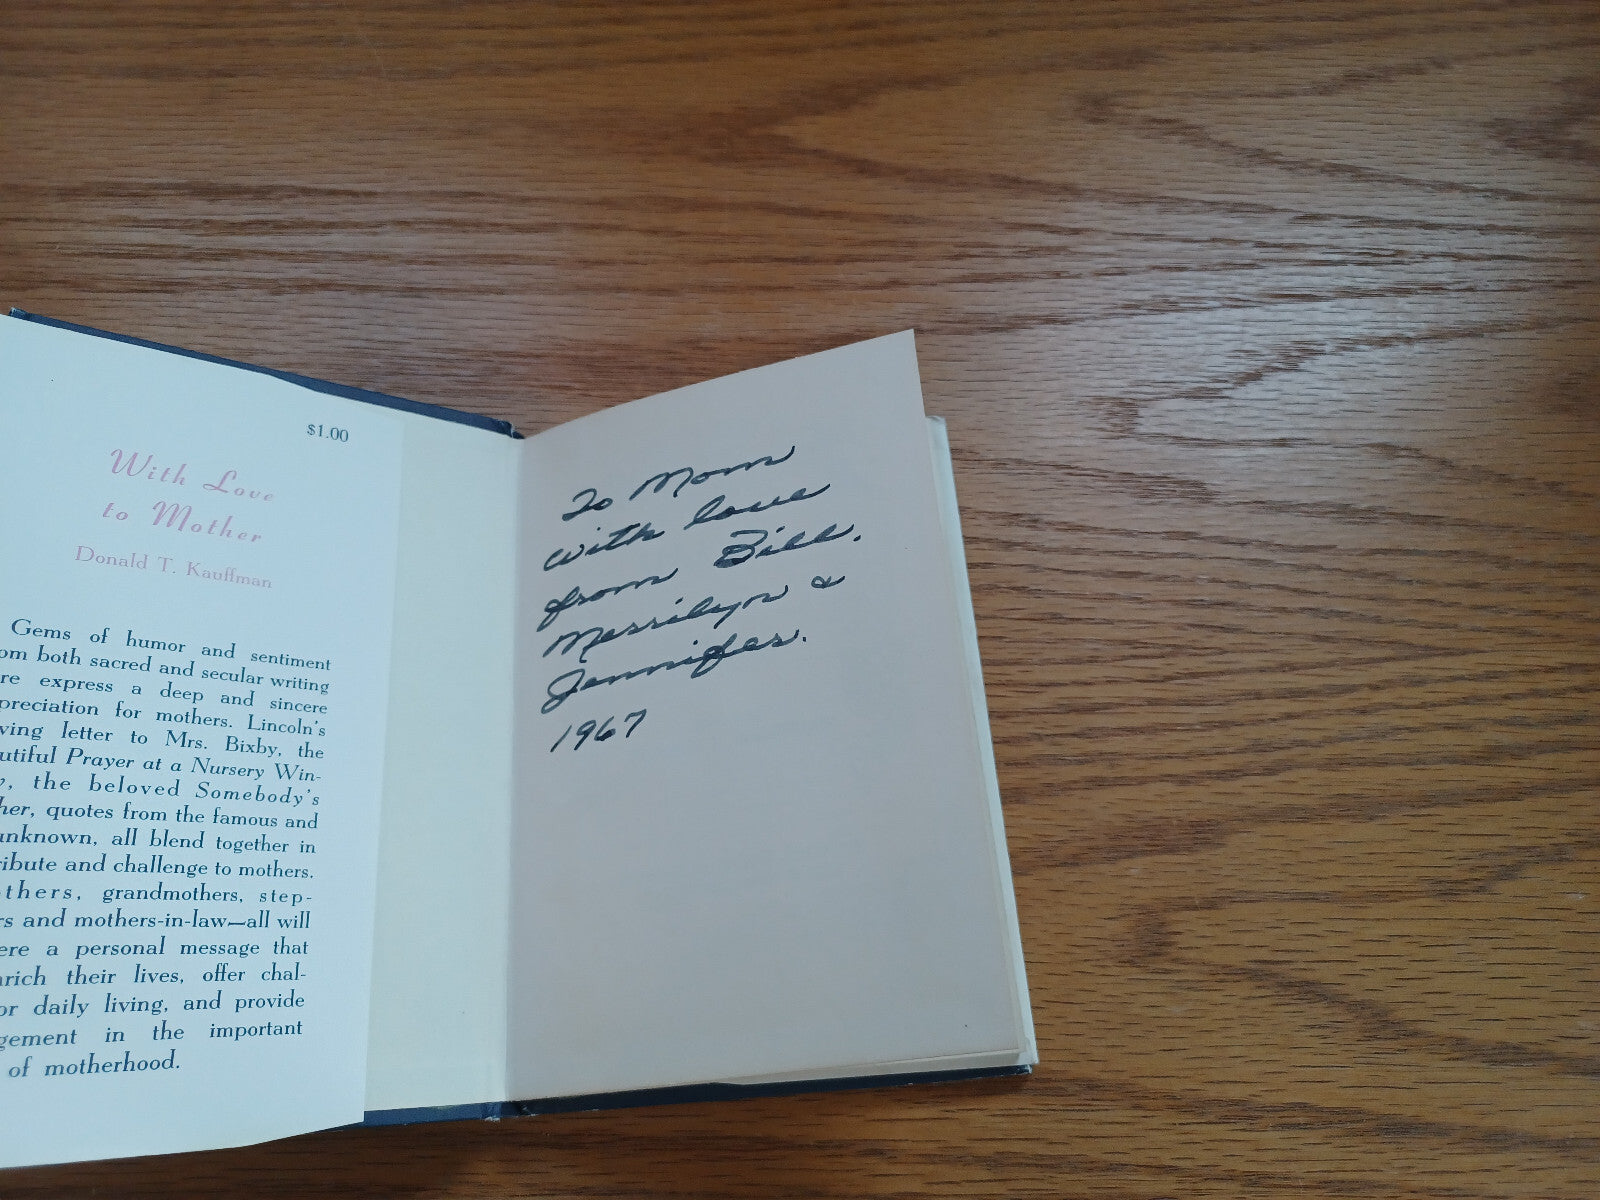 $1.00
With Love
to Mother
Donald T. Kauffman
Gems of humor and sentiment
om both sacred and secular writing
re express a deep and sincere
preciation for mothers. Lincoln's
ving letter to Mrs. Bixby, the
utiful Prayer at a Nursery Win-
, the beloved Somebody's
her, quotes from the famous and
unknown, all blend together in
ribute and challenge to mothers.
thers, grandmothers, step-
rs and mothers-in-law—all will
ere a personal message that
nrich their lives, offer chal-
or daily living, and provide
gement in the important
of motherhood.
To Mom
with love
from Bill,
Merrilyn &
Jennifer.
1967